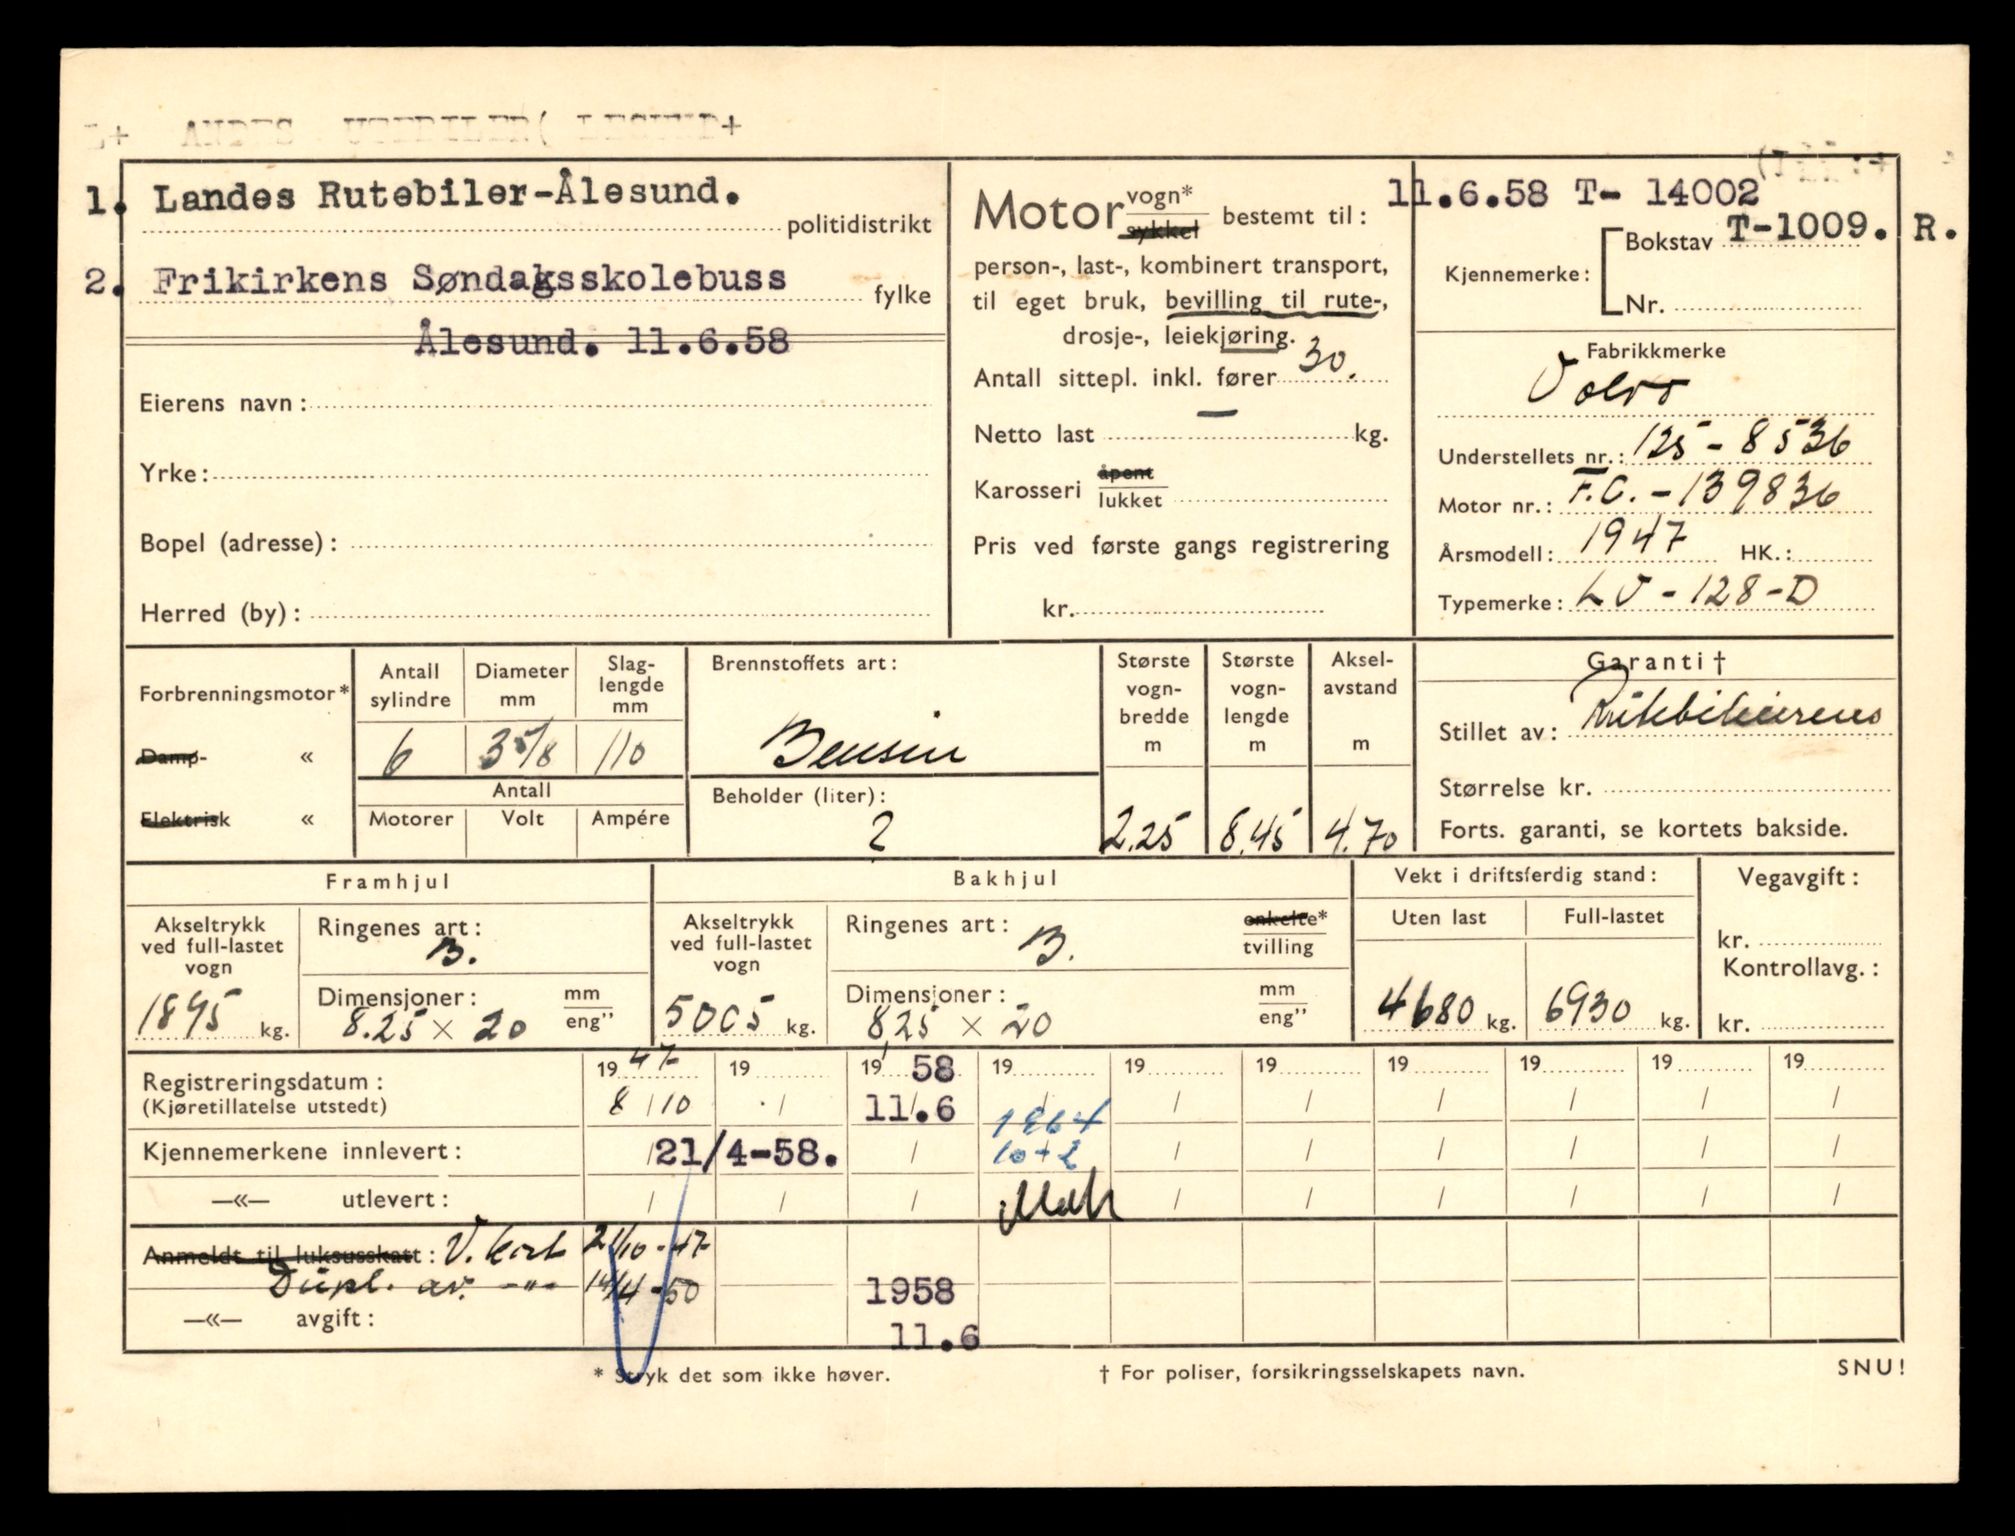 1. Landes Rutebiler-Ålesund.
politidistrikt
2. Frikirkens Søndagsskolebuss
fylke
Ålesund. 11.6.58
Eierens navn:
Yrke:
Bopel (adresse):
Herred (by):
Motor vogn*
sykkel bestemt til:
person-, last-, kombinert transport,
til eget bruk, bevilling til rute-,
drosje-, leiekjøring.
Antall sittepl. inkl. fører 30.
Netto last — kg.
Karosseri åpent
lukket
Pris ved første gangs registrering
kr.
11.6.58 T- 14002
Kjennemerke: Bokstav T-1009. R.
Nr.
Fabrikkmerke
Volvo
Understellets nr.: 125-8536
Motor nr.: F.C. - 139836
Årsmodell: 1947 HK.:
Typemerke: LV - 128-D
Forbrenningsmotor*
Damp- «
Elektrisk «
Antall sylindre Diameter mm Slag-lengde mm
6 3 5/8 110
Antall
Motorer Volt Ampére
Brennstoffets art:
Bensin
Beholder (liter):
?
Største vogn-bredde m Største vogn-lengde m Aksel-avstand m
2.25 8.45 4.70
Garanti†
Stillet av: Rutebileiernes
Størrelse kr.
Forts. garanti, se kortets bakside.
Framhjul
Akseltrykk ved full-lastet vogn
1895 kg.
Ringenes art:
B.
Dimensjoner: mm
8.25 × 20 eng"
Bakhjul
Akseltrykk ved full-lastet vogn
5005 kg.
Ringenes art: enkelte*
B. tvilling
Dimensjoner: mm
8,25 × 20 eng"
Vekt i driftsferdig stand:
Uten last Full-lastet
4680 kg. 6930 kg.
Vegavgift:
kr.
Kontrollavg.:
kr.
Registreringsdatum: 19 47 19 19 58 19 19 19 19 19 19 19
(Kjøretillatelse utstedt) 8/10 / 11.6 / / / / / / /
1964
Kjennemerkene innlevert: / 21/4-58. / 10+2 / / / / / /
—«— utlevert: / / / / / / / / /
Anmeldt til luksusskatt: V. kort 21/10-47
Dupl. av. -"- 14/4-50 1958
—«— avgift: 11.6
* Stryk det som ikke høver.
† For poliser, forsikringsselskapets navn.
SNU!